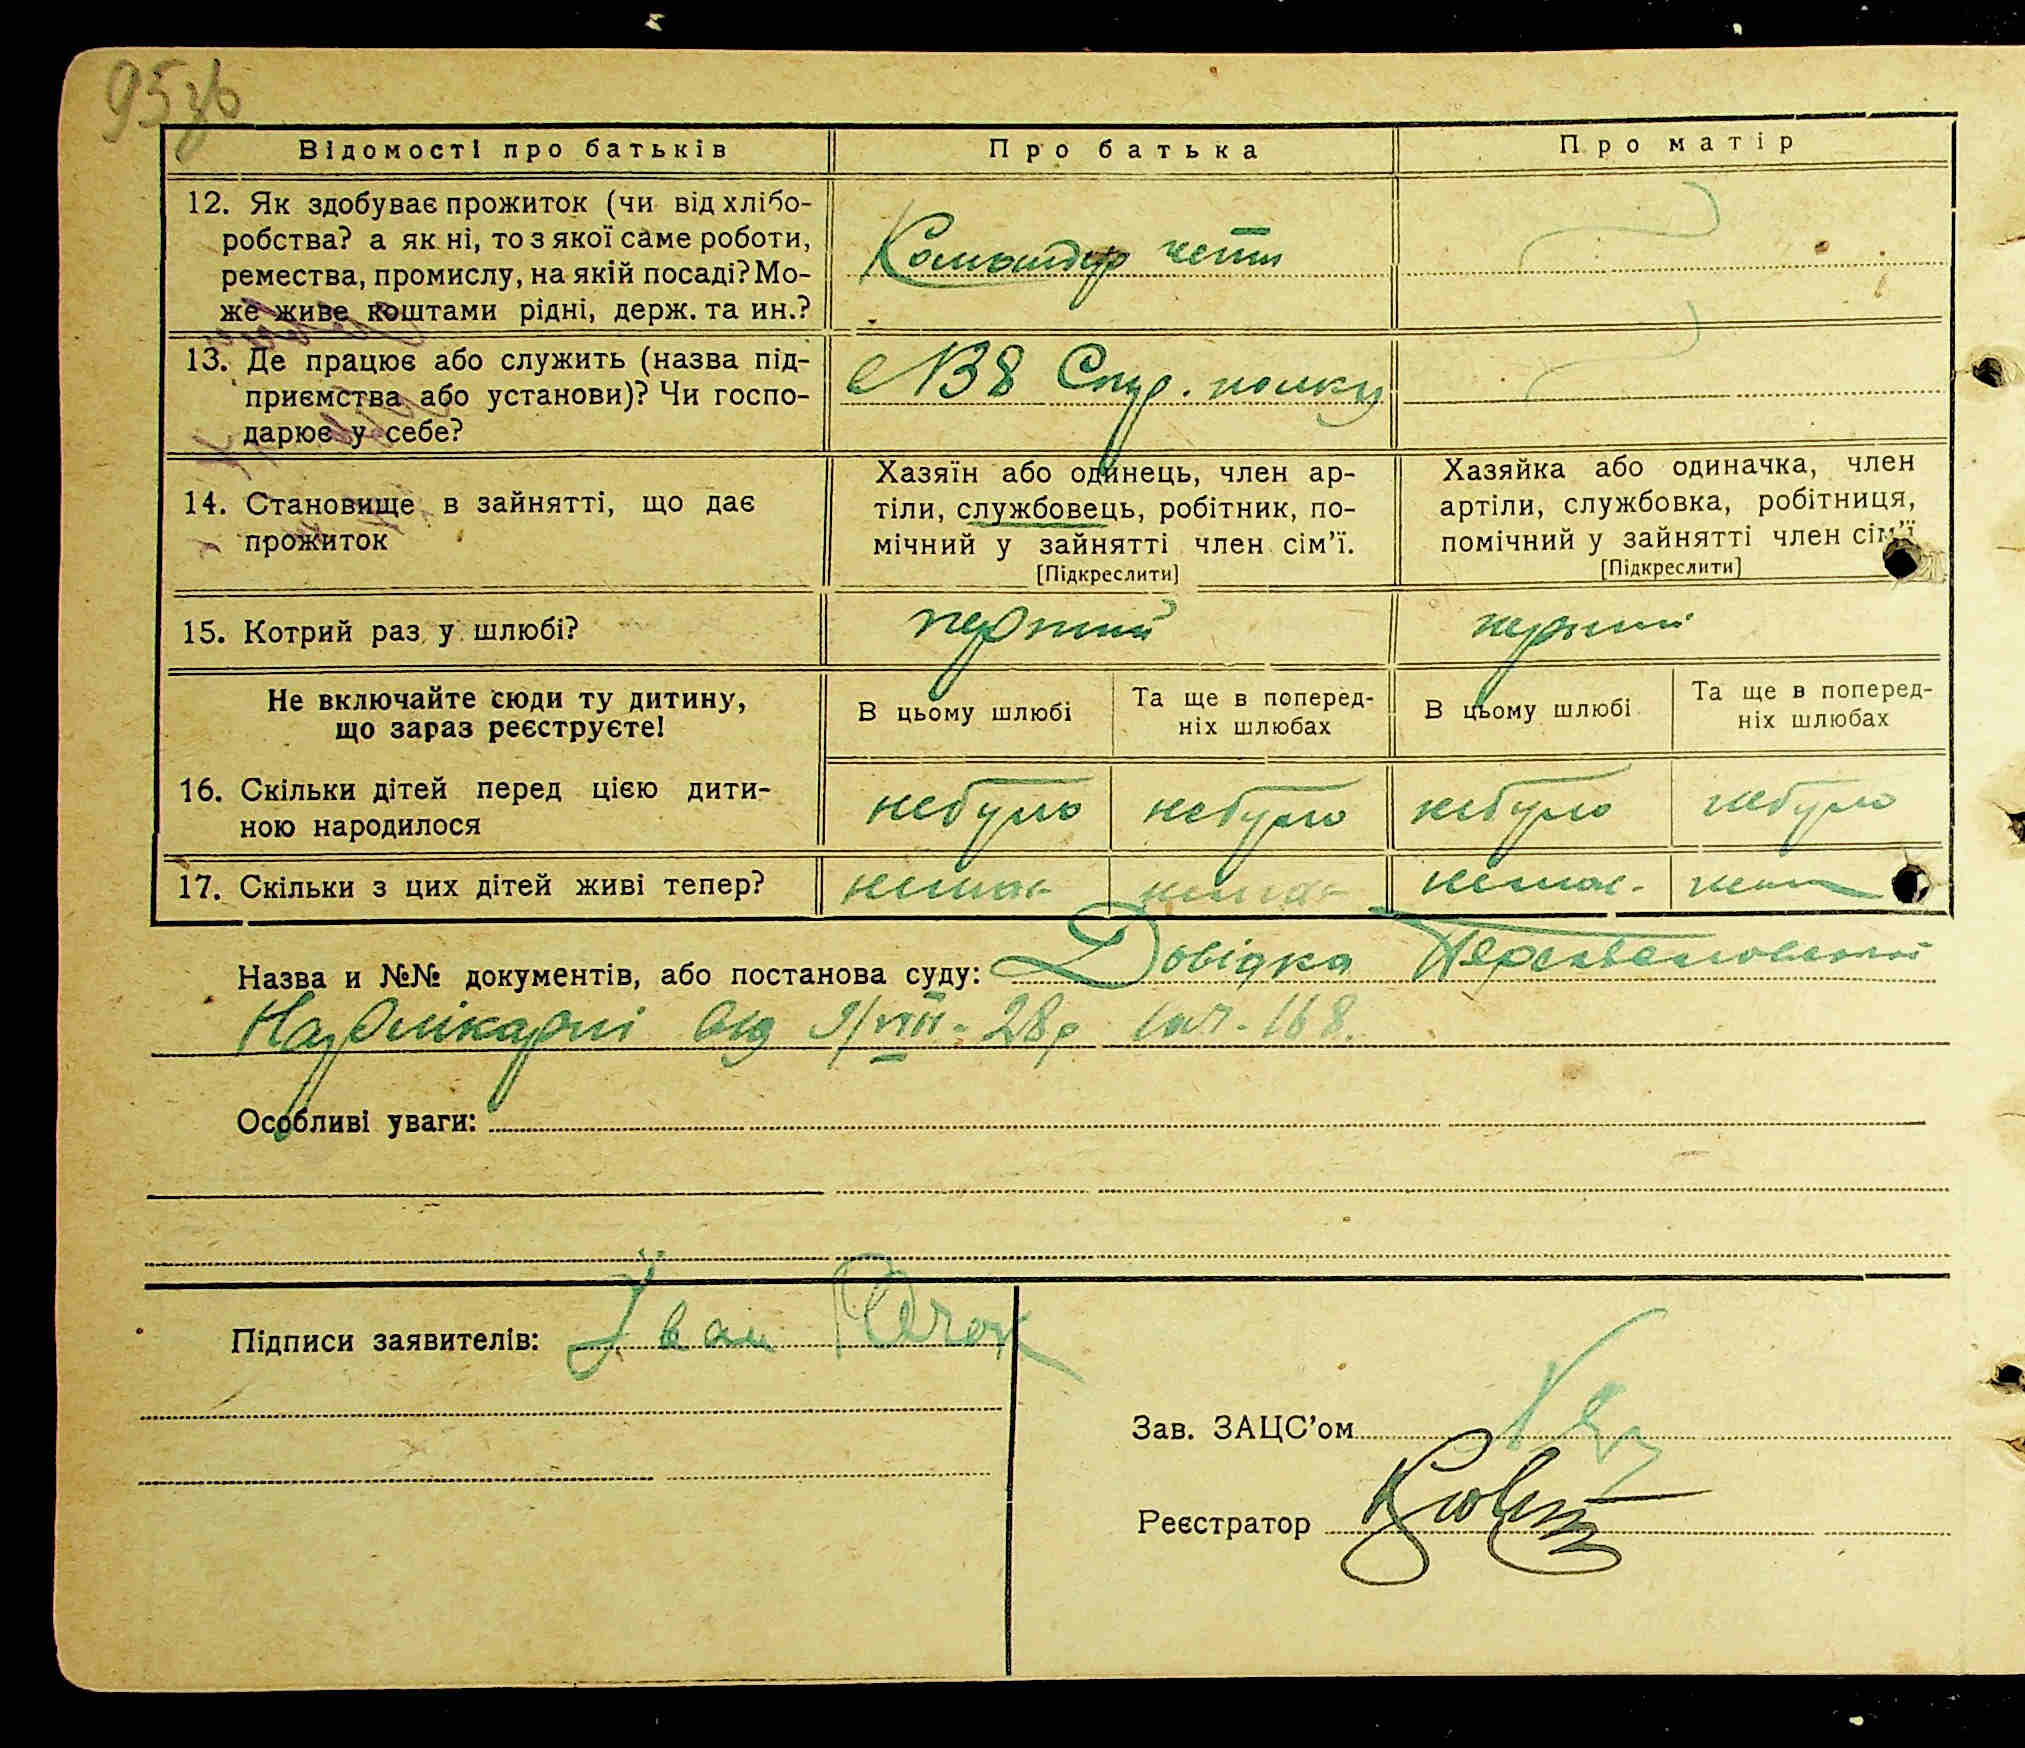 95зв
Відомості про батьків
Про батька
Про матір
12. Як здобуває прожиток (чи від хлібо-
робства? а як ні, то з якої саме роботи,
ремества, промислу, на якій посаді? Мо-
же живе коштами рідні, держ. та ин.?
Командир
13. Де працює або служить (назва під-
приємства або установи)? Чи госпо-
дарює у себе?
полку
14. Становище в зайнятті, що дає
прожиток
Хазяїн або одинець, член ар-
тіли, службовець, робітник, по-
мічний у зайнятті член сім'ї.
[Підкреслити]
Хазяйка або одиначка, член
артіли, службовка, робітниця,
помічний у зайнятті член сім'ї
[Підкреслити]
15. Котрий раз у шлюбі?
перший
перший
Не включайте сюди ту дитину,
що зараз реєструєте!
В цьому шлюбі
Та ще в поперед-
ніх шлюбах
В цьому шлюбі
Та ще в поперед-
ніх шлюбах
16. Скільки дітей перед цією дити-
ною народилося
небуло
небуло
небуло
небуло
17. Скільки з цих дітей живі тепер?
немає
немає
немає
Назва и №№ документів, або постанова суду: Довідка
від 9/VIII-28р 168.
Особливі уваги:
Підписи заявителів: Іван
Зав. ЗАЦС'ом
Реєстратор